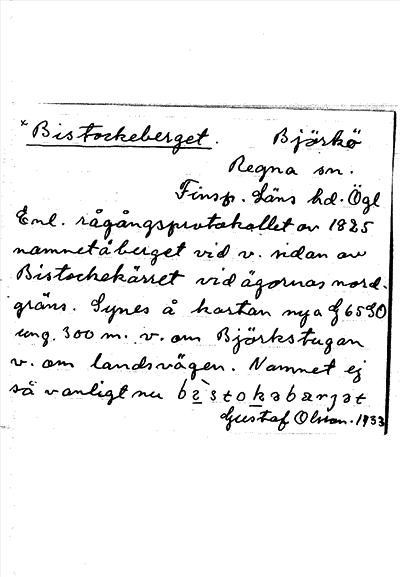 × Bistockeberget. Björkö
Regna sn.
Finsp. Läns hd. Ögl
Enl. rågångsprotokollet av 1825
namnet å berget vid v. sidan av
Bistockekärret vid ägornas nord-
gräns. Synes å kartan nya
ung. 300 m. v. om Björkstugan
v. om landsvägen. Namnet ej
så vanligt nu bìstokabærjət
Gustaf Olson. 1933